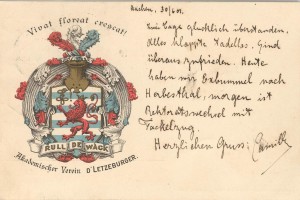 Vivat floreat crescat!
RULL DE WÂCK
Akademischer Verein D'LETZEBURGER.
Aachen, 30/6.01.
Tage glücklich überstanden.
Alles klappte tadellos. Sind
überaus zufrieden. Heute
haben wir Exbummel nach
Herbesthal, morgen ist
Rektoratswechsel mit
Fackelzug.
Herzlichen Gruss: